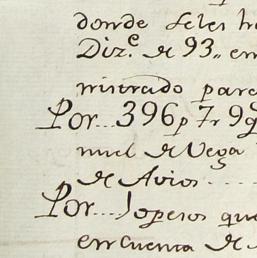 donde seles ha
Diz.e de 93,, en
nistrado para
Por... 396 p 7 r 9 g
nuel de Vega
de Avios ....
Por... 10 pesos que
en cuenta de